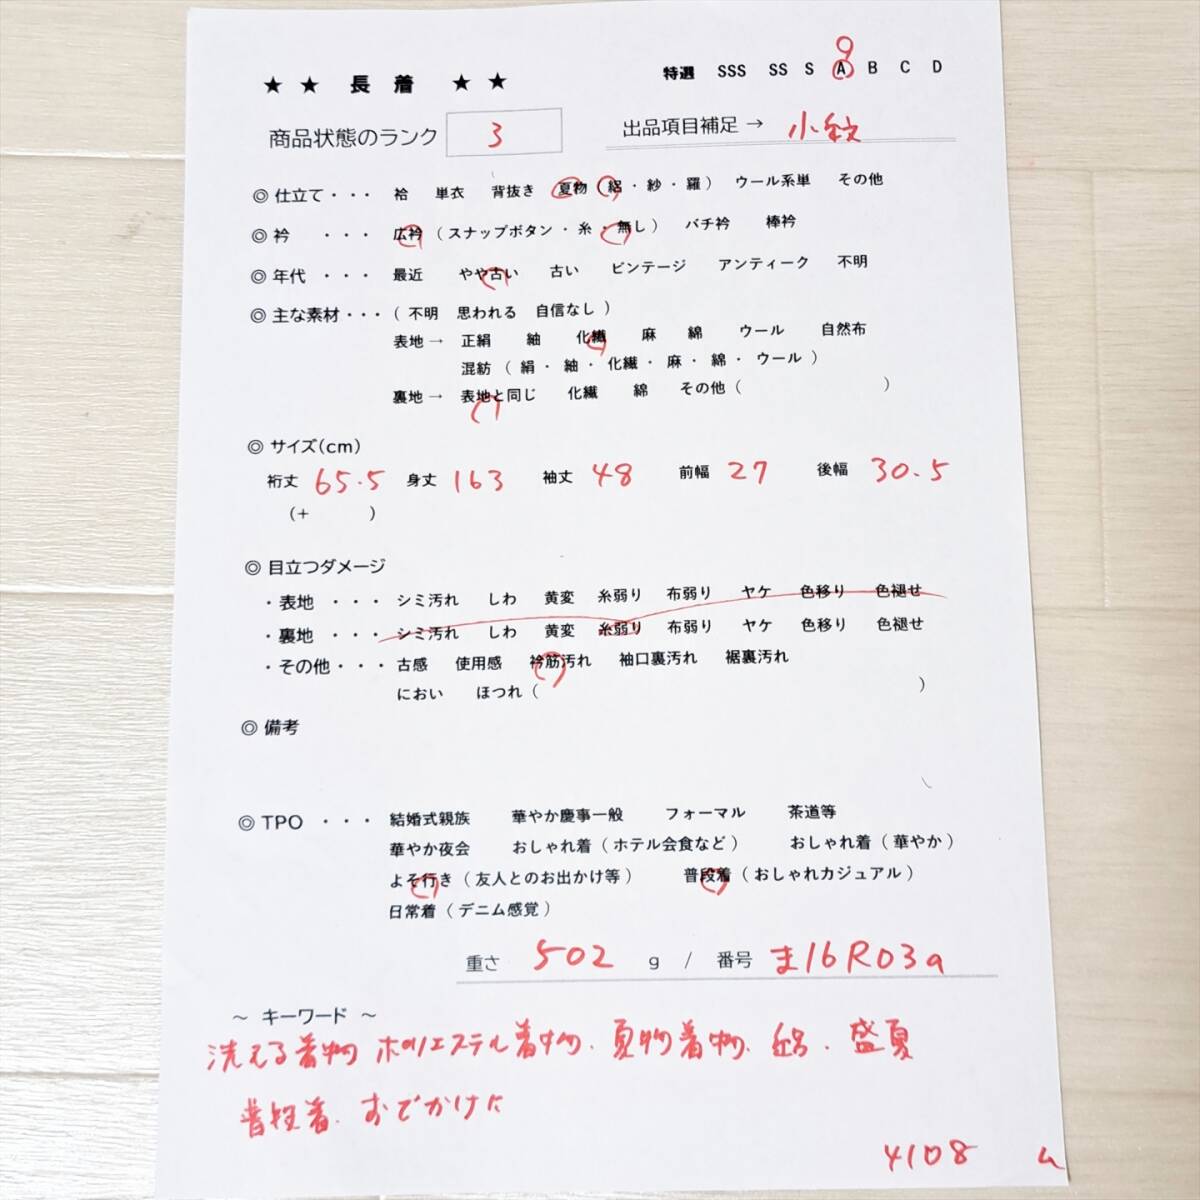 ★ ★ 長 着 ★ ★ 特選 SSS SS S A B C D
商品状態のランク 3 出品項目補足→ 小紋
◎ 仕立て・・・ 袷 単衣 背抜き 夏物 ( 絽 ・ 紗 ・ 羅 ) ウール系単 その他
◎ 衿 ・・・ 広衿 ( スナップボタン ・ 糸 ・ 無し ) バチ衿 棒衿
◎ 年代 ・・・ 最近 やや古い 古い ビンテージ アンティーク 不明
◎ 主な素材・・・ ( 不明 思われる 自信なし )
表地→ 正絹 紬 化繊 麻 綿 ウール 自然布
混紡 ( 絹 ・ 紬 ・ 化繊 ・ 麻 ・ 綿 ・ ウール )
裏地→ 表地と同じ 化繊 綿 その他 ( )
◎ サイズ(cm)
裄丈 65.5 身丈 163 袖丈 48 前幅 27 後幅 30.5
(+ )
◎ 目立つダメージ
・表地 ・・・ シミ汚れ しわ 黄変 糸弱り 布弱り ヤケ 色移り 色褪せ
・裏地 ・・・ シミ汚れ しわ 黄変 糸弱り 布弱り ヤケ 色移り 色褪せ
・その他・・・ 古感 使用感 衿筋汚れ 袖口裏汚れ 裾裏汚れ
におい ほつれ ( )
◎ 備考
◎ TPO ・・・ 結婚式親族 華やか慶事一般 フォーマル 茶道等
華やか夜会 おしゃれ着 ( ホテル会食など ) おしゃれ着 ( 華やか )
よそ行き ( 友人とのお出かけ等 ) 普段着 ( おしゃれカジュアル )
日常着 ( デニム感覚 )
重さ 502 g / 番号 ま16R03a
～ キーワード ～
洗える着物 ポリエステル着物、夏物着物、絽、盛夏
普段着、おでかけに
4108 ム